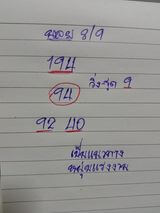 มงคล 8/9
194
94 วิ่งชุด 9
92 40
เป็นแนวทาง
หนุ่มแรงงาน